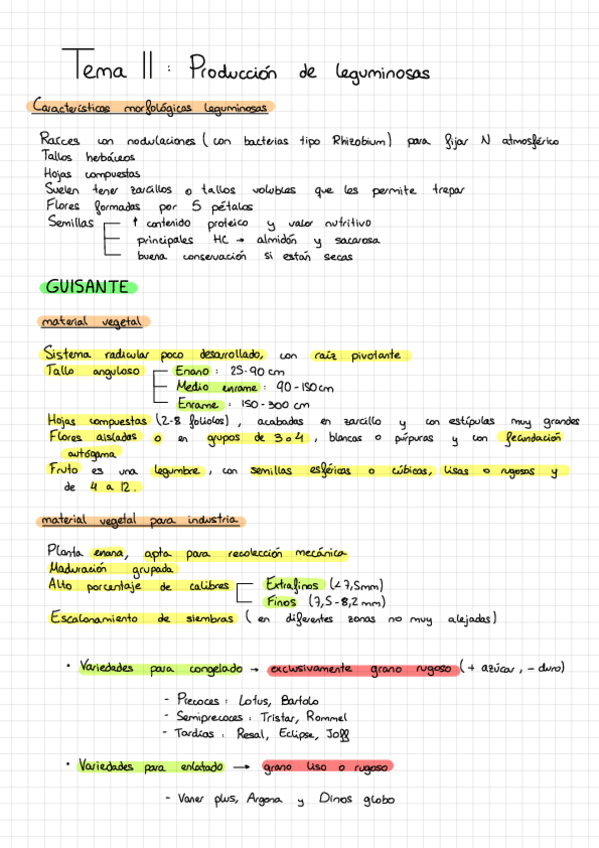 Tema 11: Producción de leguminosas
Características morfológicas leguminosas
Raíces con nodulaciones (con bacterias tipo Rhizobium) para fijar N atmosférico
Tallos herbáceos
Hojas compuestas
Suelen tener zarcillos o tallos volubles que les permite trepar
Flores formadas por 5 pétalos
Semillas ↑ contenido proteico y valor nutritivo
principales HC → almidón y sacarosa
buena conservación si están secas
GUISANTE
material vegetal
Sistema radicular poco desarrollado, con raíz pivotante
Tallo anguloso Enano: 25-90 cm
Medio enrame: 90-150cm
Enrame: 150-300 cm
Hojas compuestas (2-8 foliolos), acabadas en zarcillo y con estípulas muy grandes
Flores aisladas o en grupos de 3 o 4, blancas o púrpuras y con fecundación
autógama
Fruto es una legumbre, con semillas esféricas o cúbicas, lisas o rugosas y
de 4 a 12.
material vegetal para industria
Planta enana, apta para recolección mecánica
Maduración agrupada
Alto porcentaje de calibres Extrafinos (<7,5mm)
Finos (7,5-8,2 mm)
Escalonamiento de siembras (en diferentes zonas no muy alejadas)
• Variedades para congelado → exclusivamente grano rugoso (+ azúcar, - duro)
- Precoces: Lotus, Bartolo
- Semiprecoces: Tristar, Rommel
- Tardías: Resal, Eclipse, Joff
• Variedades para enlatado → grano liso o rugoso
- Vaner plus, Argona y Dinos globo